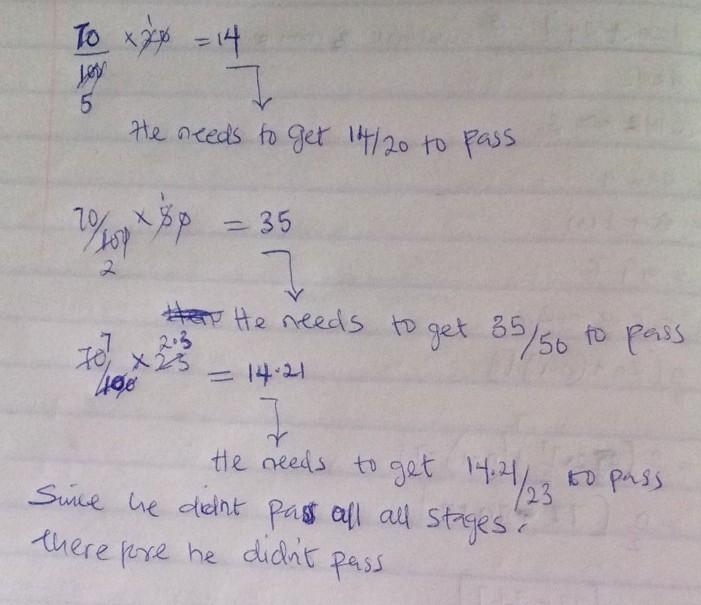 70/100 × 20 = 14
5
1
He needs to get 14/20 to pass
70/100 × 50 = 35
2
1
He needs to get 35/50 to pass
7 2.3
70/100 × 23 = 14.21
He needs to get 14.21/23 to pass
Since he didnt pass all all stages.
therefore he didn't pass